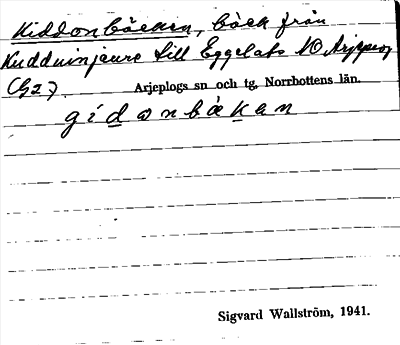 Kiddonbäcken, bäck från
Kudduinjaure till Eggelats NO Arjeplog
(G2).
Arjeplogs sn och tg, Norrbottens län.
gidonbäkan
Sigvard Wallström, 1941.